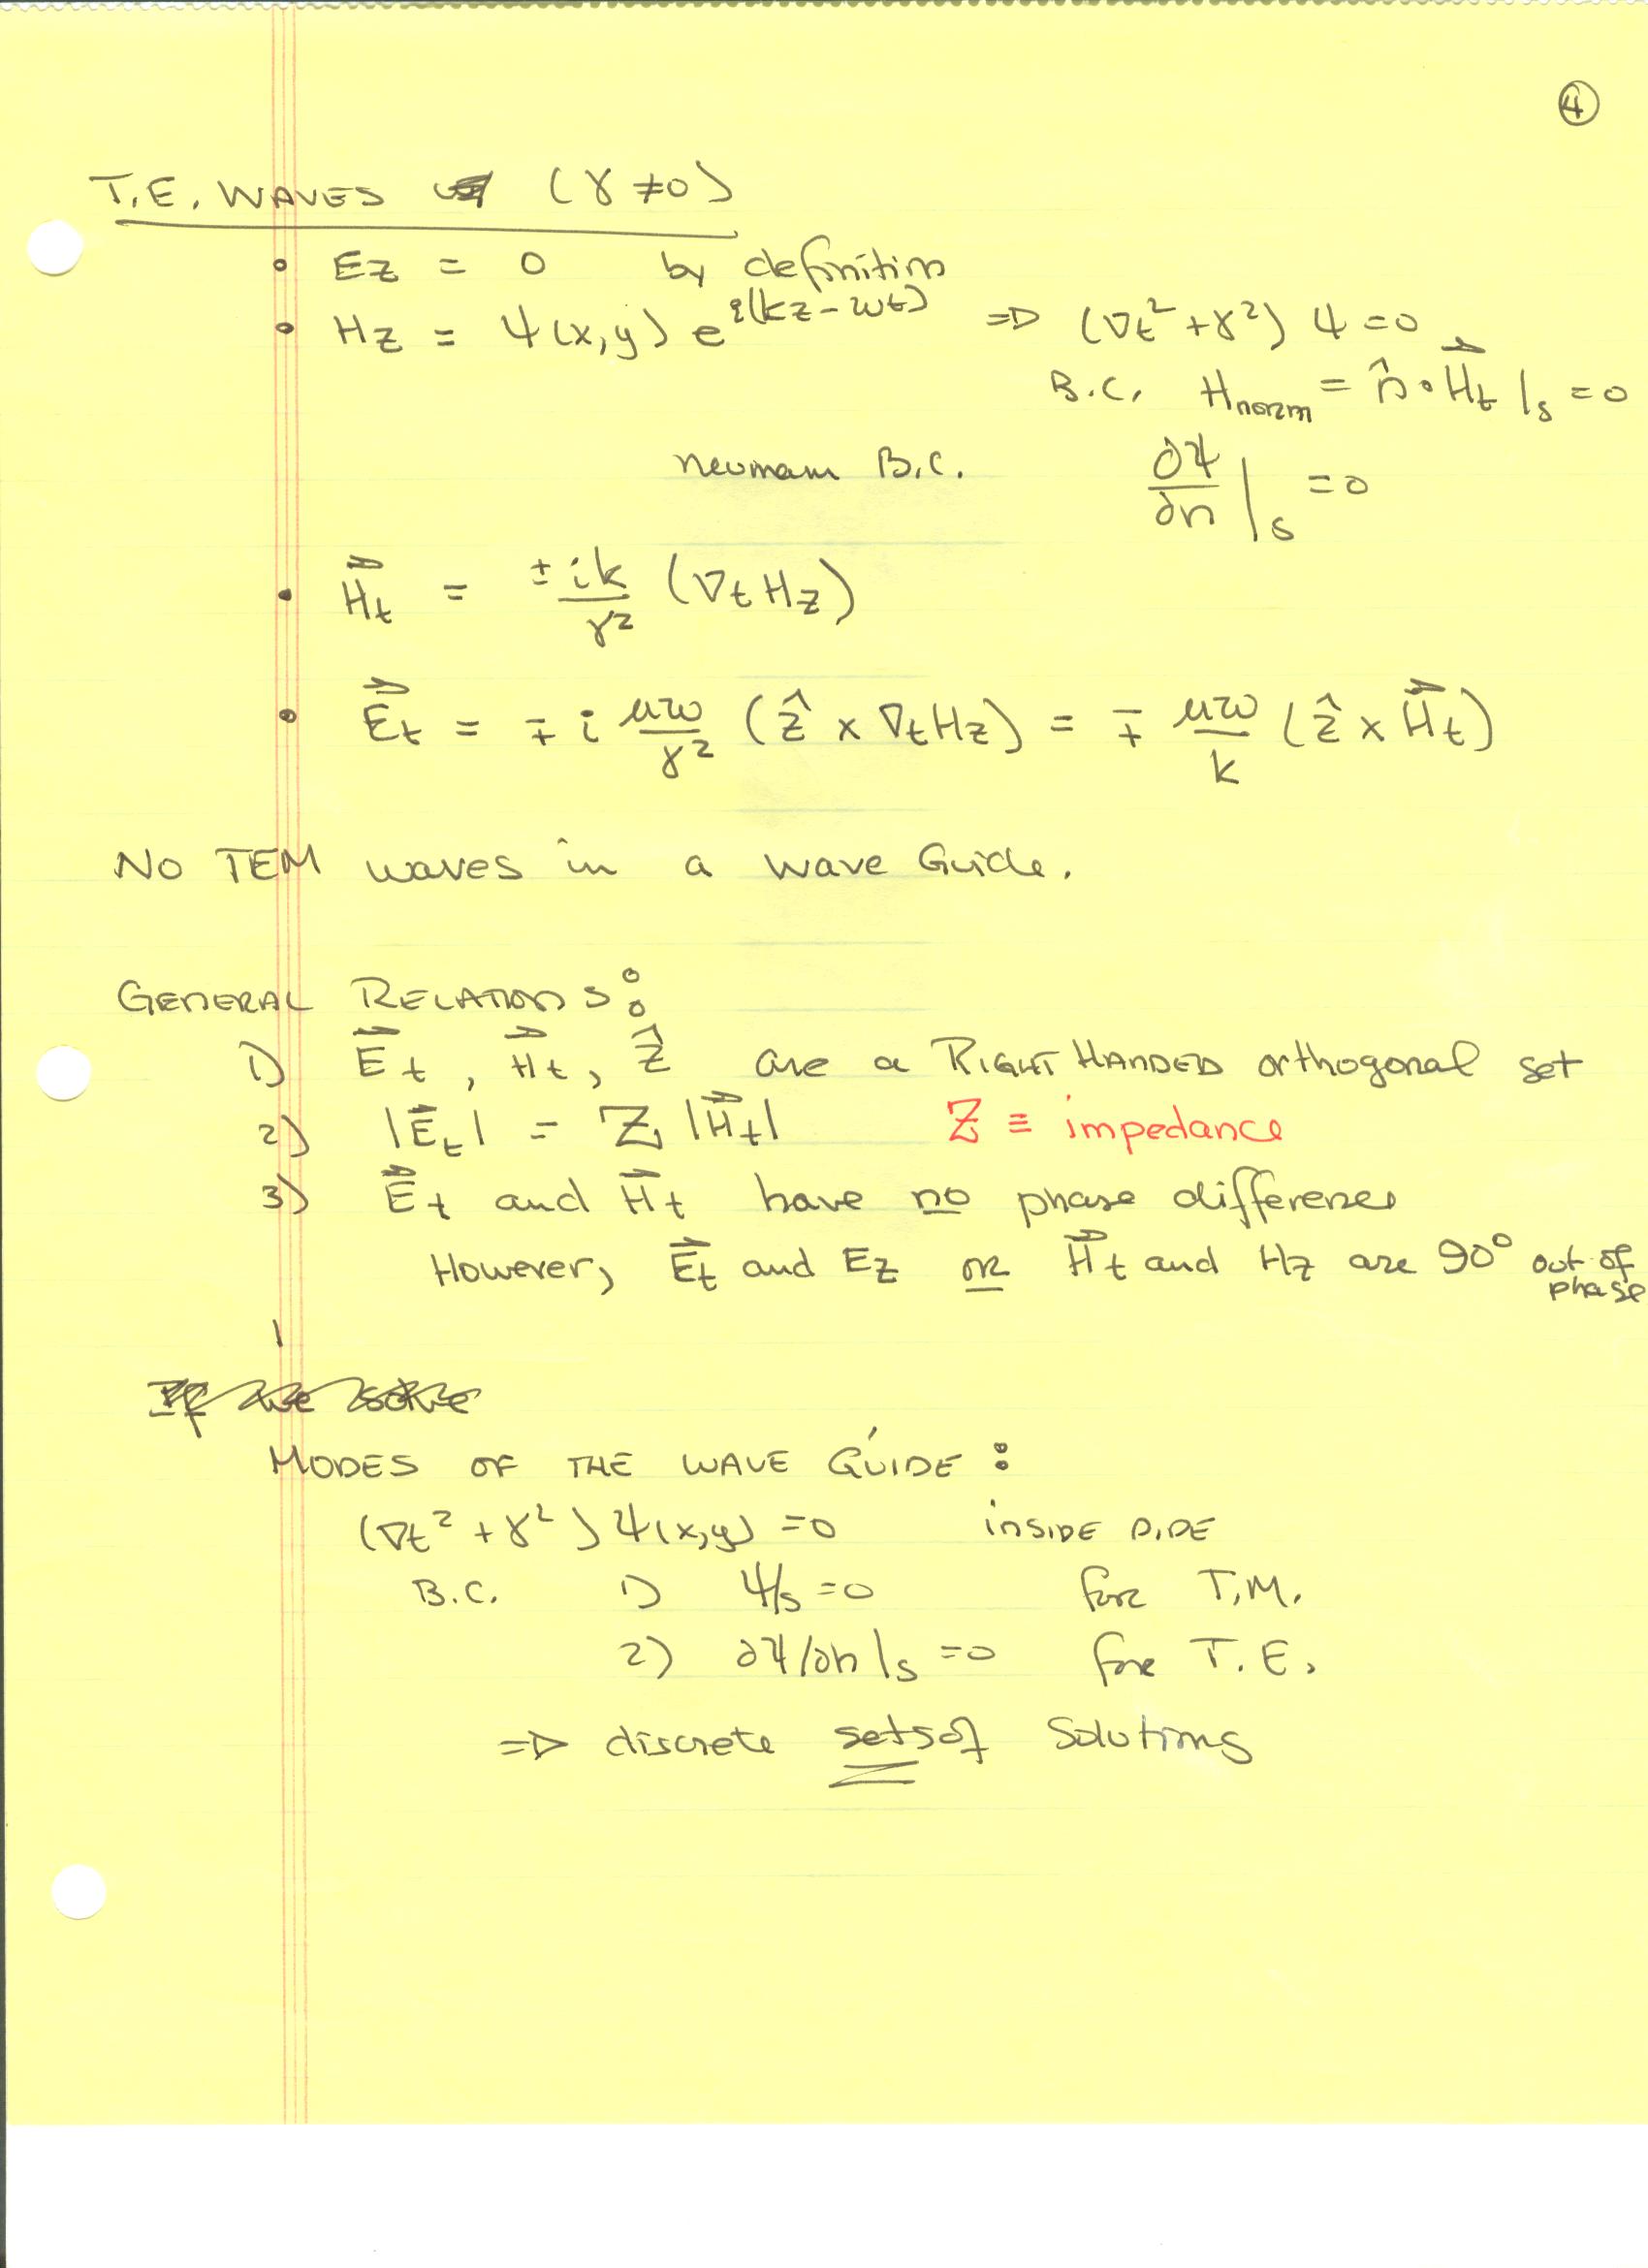 ④
T.E. WAVES (γ ≠ 0)
• Ez = 0 by definition
• Hz = ψ(x,y) e^i(kz-ωt) ⇒ (∇t² + γ²) ψ = 0
B.C. Hnorm = n̂ • H⃗t |s = 0
neumann B.C. ∂ψ/∂n |s = 0
• H⃗t = ±ik/γ² (∇t Hz)
• E⃗t = ∓ i μω/γ² (ẑ × ∇t Hz) = ∓ μω/k (ẑ × H⃗t)
NO TEM waves in a wave Guide.
GENERAL RELATIONS:
1) E⃗t, H⃗t, ẑ are a RIGHT HANDED orthogonal set
2) |E⃗t| = Z |H⃗t| Z ≡ impedance
3) E⃗t and H⃗t have no phase difference
However, E⃗t and Ez or H⃗t and Hz are 90° out of phase
If we solve
MODES OF THE WAVE GUIDE:
(∇t² + γ²) ψ(x,y) = 0 INSIDE PIPE
B.C. 1) ψ|s = 0 for T.M.
2) ∂ψ/∂n |s = 0 for T.E.
⇒ discrete sets of solutions